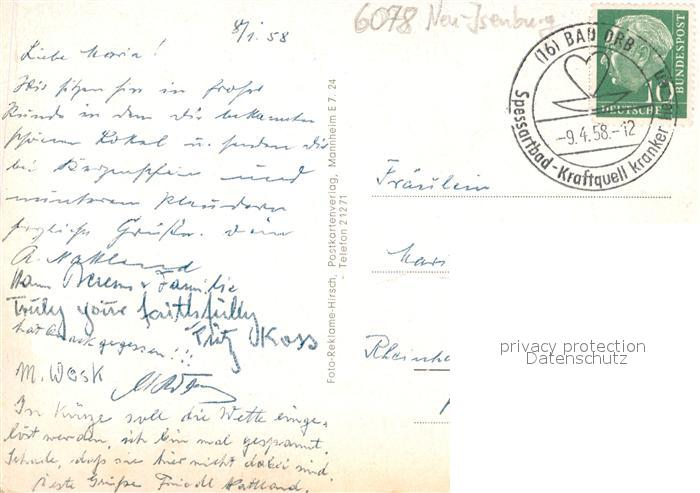 8/1.58
Liebe Maria!
Wir sitzen hier in froher
Runde in dem dir bekannten
schönen Lokal u. senden dir
bei Kerzenschein und
munterem Plaudern
herzliche Grüße. Dein
A. Nattland
Hann Berens & Familie
Truly your faithfully
Fritz Koss
hat gegessen!!!
M. Wosk
In Kürze soll die Wette einge-
löst werden, ich bin mal gespannt.
Schade, daß sie hier nicht dabei sind.
Beste Grüße Friedl Nattland.
Foto-Reklame-Hirsch, Postkartenverlag, Mannheim E 7. 24
- Telefon 21271
6078 Neu-Isenburg
(16) BAD ORB
-9.4.58.-12
Spessartbad-Kraftquell kranker
DEUTSCHE
BUNDESPOST
10
Fräulein
Mari
Rheinh
privacy protection
Datenschutz